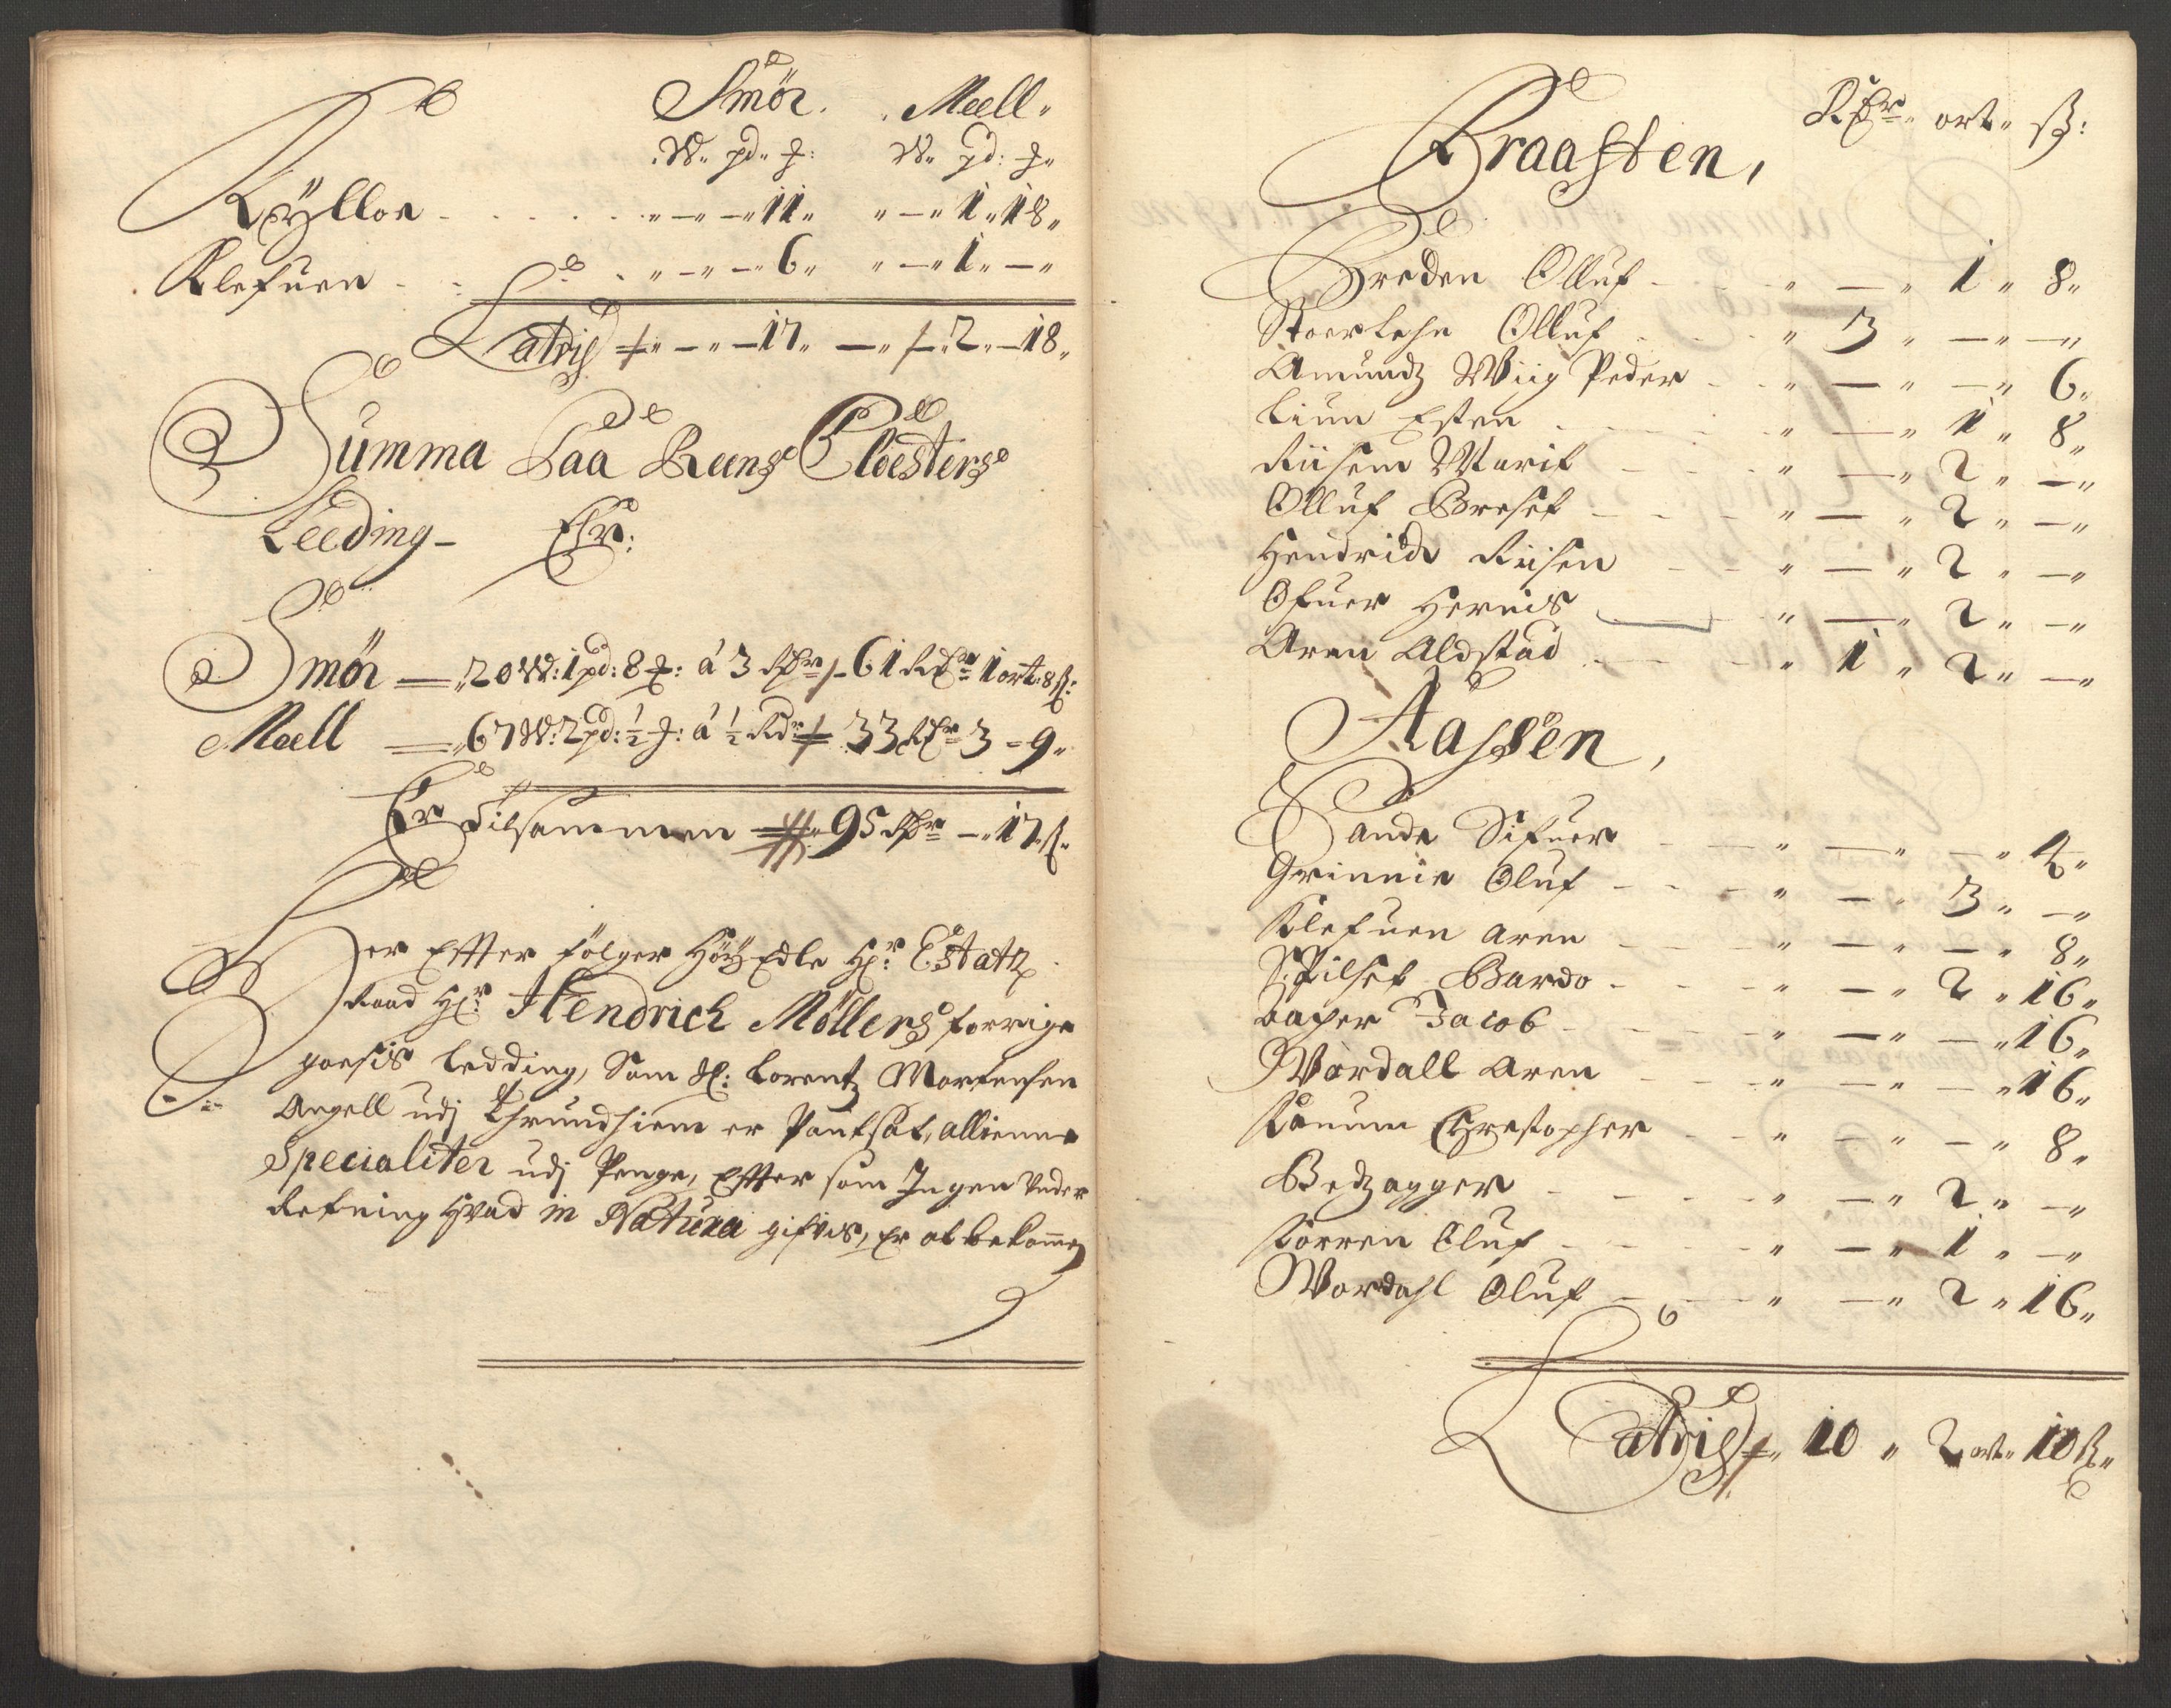 Smör. Meell.
W. pd. ℔: W. pd: ℔.
Kÿlloe - - - „ — „ — „ 11 „ „ — „ 1 „ 18 „
Klefuen - - „ — „ — 6 „ „ — „ 1 „ — „
Lateris „ — „ — 17 „ — „ 2 „ — 18 „
Summa Paa Reens Closters
Leeding — Er:
Smör — 20 W: 1 pd: 8 ℔: á 3 Rdr — 61 Rdr 1 ort: 8 ß:
Meell — 67 W: 2 pd: ½ ℔: á ½ Rdr 33 Rdr 3 - 9 „
Er Tilsammen — 95 Rdr — „ 17 ß.
Her Effter følger HöyEdle Hr: Estatz
Raad Hr: Hendrich Möllers forrige
goedsis Ledding, Som Sl: Lorentz Mortensen
Angell udj Thrundhiem er Pantsat, allienne
Specialiter udj Penge, Effter som Ingen Under
Retning Hvad in Natura gifvis, er at bekomme
Rdr. ort. ß:
Braasten,
Breden Olluf - - „ — „ 1 „ 8 „
Stoerlehn Olluf - - „ 3 „ — „ — „
Amundz Wiig Peder - - „ — „ — „ 6 „
Liun Esten - - - „ — „ 1 „ 8 „
Riisem Marit - - - „ — „ 2 „ — „
Olluf Bresef - - - „ — „ 2 „ — „
Hendrich Riisen - - „ — „ 2 „ — „
Ofuer Hernis — „ — „ 2 „ — „
Aren Aldstad - - - „ 1 „ 2 „ — „
Aassen,
Sande Sifuer - - „ — „ — „ 4 „
Grinnie Oluf - - - „ — „ 3 „ — „
Klefuen Aren - - - „ — „ — „ 8 „
Spilset Bardo - - - „ — „ 2 „ 16 „
Aacher Jacob - - - „ — „ — „ 16 „
Wordall Aren - - - „ — „ — „ 16 „
Rönum Chrestopher - - „ — „ — „ 8 „
Bedzagger - - - „ — „ 2 „ — „
Korren Oluf - - - „ — „ 1 „ — „
Wordahl Oluf - - - „ — „ 2 „ 16 „
Lateris 10 „ 2 ort „ 10 ß „